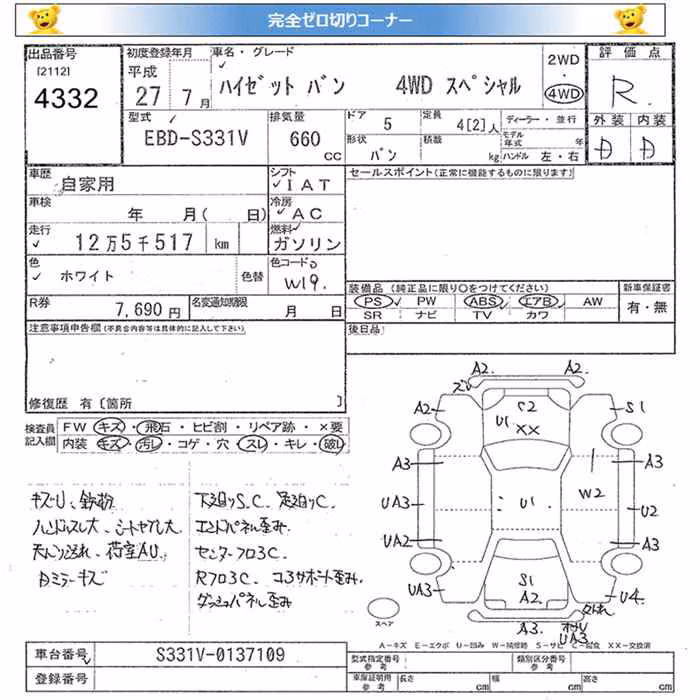 完全ゼロ切りコーナー
出品番号
[2112]
4332
初度登録年月
平成
27 7月
車名・グレード
ハイゼット バン 4WD スペシャル
2WD
・
4WD
評価点
R
型式
EBD-S331V
排気量
660
CC
ドア
5
定員
4[2]人
ディーラー・並行
形状
バン
積載
kg
モデル年式
年
ハンドル 左・右
外装 内装
D D
車歴
自家用
シフト
IAT
セールスポイント(正常に機能するものに限ります)
車検
年 月( 日)
冷房
AC
走行
12万5千517 km
燃料
ガソリン
色
ホワイト
色替
色コードNo
W19.
装備品(純正品に限り〇をつけてください)
PS PW ABS エアB AW
SR ナビ TV カワ
新車保証書
有・無
R券
7,690円
名変通知期限
月 日
後日品
注意事項申告欄(不具合内容等は具体的に記入して下さい)
修復歴 有〔箇所 〕
検査員記入欄
FW キズ・飛石・ヒビ割・リペア跡・×要
内装 キズ・汚レ・コゲ・穴・スレ・キレ・破レ
キズU、鉄粉
ハンドルスレ大、シートヤブレ大
天バリ汚れ、荷室AU
Dミラーキズ
下廻りS.C、足廻りC.
エンドパネル歪み.
センターフロアC.
RフロアC. コアサポート歪み.
ダッシュパネル歪み
A2. A2.
A2 S2 S1
U1
XX
A3 A3
UA3 U1 W2 U2
UA2 A3
UA3 S1 U4
A2
A3.
UA3
スペア
A-キズ E-エクボ U-凹み W-補修跡 S-サビ C-腐食 XX-交換済
車台番号
S331V-0137109
登録番号
型式指定番号
参考
類別区分番号
参考
車庫証明用
参考
長さ cm 幅 cm 高さ cm